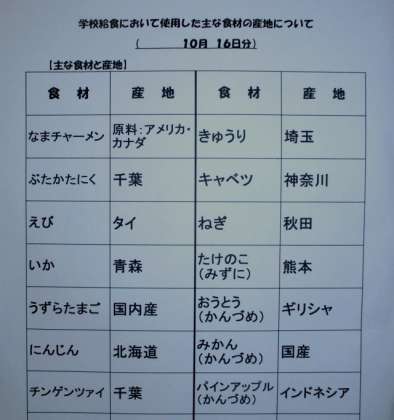 学校給食において使用した主な食材の産地について
(　　　10月 16日分)
【主な食材と産地】
食　材　産　地　食　材　産　地
なまチャーメン　原料：アメリカ・カナダ　きゅうり　埼玉
ぶたかたにく　千葉　キャベツ　神奈川
えび　タイ　ねぎ　秋田
いか　青森　たけのこ（みずに）　熊本
うずらたまご　国内産　おうとう（かんづめ）　ギリシャ
にんじん　北海道　みかん（かんづめ）　国産
チンゲンツァイ　千葉　パインアップル（かんづめ）　インドネシア